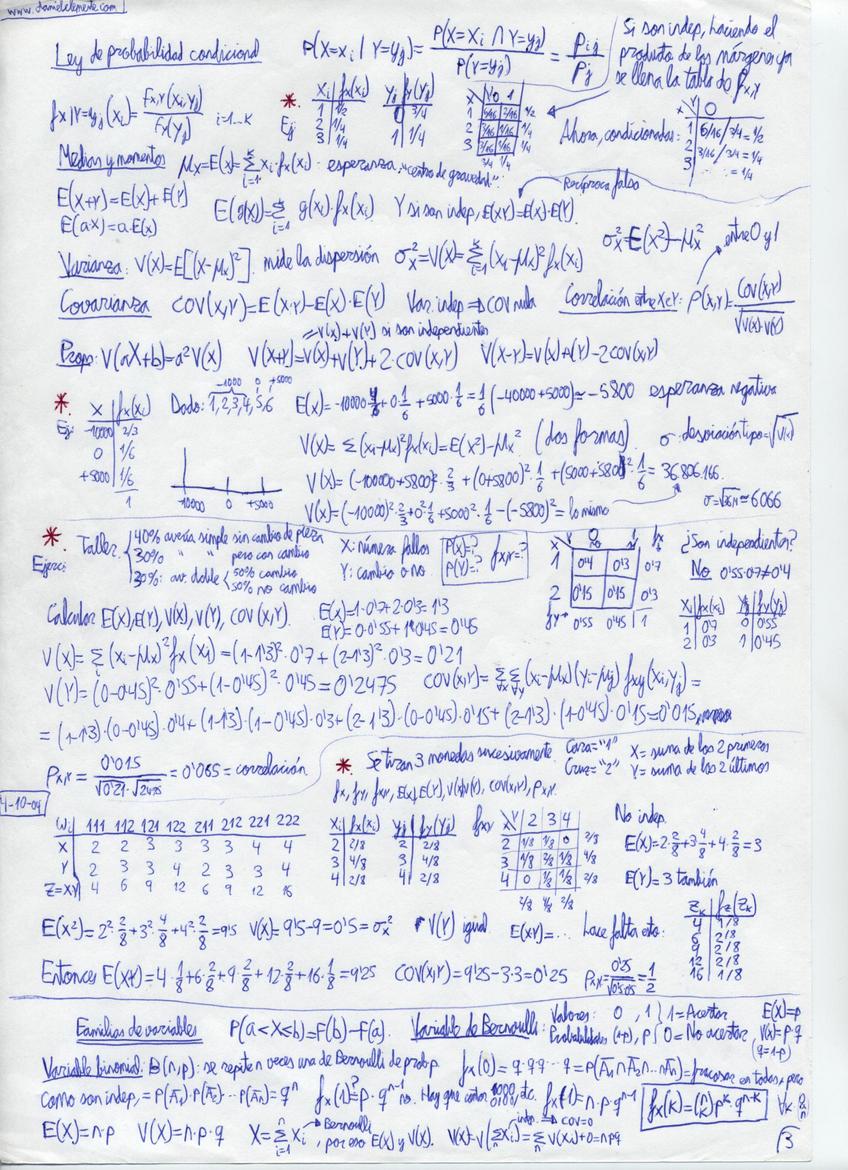 www.danielclemente.com
Ley de probabilidad condicional P(X=xi | Y=yj) = P(X=xi ∩ Y=yj) / P(Y=yj) = Pij / Pj
Si son indep, haciendo el
producto de los márgenes ya
se llena la tabla de fX,Y
fX|Y=yj(xi) = fX,Y(xi,yj) / fY(yj) i=1...k
* Ej:
Xi | fX(xi)
1 | 1/2
2 | 1/4
3 | 1/4
Yj | fY(yj)
0 | 3/4
1 | 1/4
X Y 0 1
1 6/16 2/16 1/2
2 3/16 1/16 1/4
3 3/16 1/16 1/4
3/4 1/4
Ahora, condicionadas:
X Y 0
1 6/16 / 3/4 = 1/2
2 3/16 / 3/4 = 1/4
3 .. = 1/4
Medias y momentos μX=E(X)=Σ xi·fX(xi) · esperanza, "centro de gravedad".
Recíproca falsa
E(X+Y)=E(X)+E(Y)
E(aX)=a·E(X)
E(g(X))=Σ g(xi)·fX(xi) Y si son indep, E(XY)=E(X)·E(Y).
Varianza: V(X)=E[(X-μX)²] mide la dispersión σX²=V(X)=Σ(xi-μX)² fX(xi) σX²=E(X²)-μX²
entre 0 y 1
Covarianza COV(X,Y)=E(X·Y)-E(X)·E(Y) Var. indep ⇒ COV nula Correlación entre X e Y: ρ(X,Y)=COV(X,Y)/√(V(X)·V(Y))
=V(X)+V(Y) si son independientes
Props: V(aX+b)=a²V(X) V(X+Y)=V(X)+V(Y)+2·COV(X,Y) V(X-Y)=V(X)+V(Y)-2COV(X,Y)
* Ej:
X | fX(xi)
-10000 | 2/3
0 | 1/6
+5000 | 1/6
1
-1000 0 +5000
Dado: 1,2,3,4,5,6
E(X)=-10000·4/6+0·1/6+5000·1/6=1/6(-40000+5000)≃-5800 esperanza negativa
V(X)=Σ(xi-μX)²fX(xi)=E(X²)-μX² (dos formas) σ: desviación tipo=√V(X)
V(X)=(-10000+5800)²·2/3+(0+5800)²·1/6+(5000+5800)²·1/6=36.806.166.
-10000 0 +5000
V(X)=(-10000)²·2/3+0·1/6+5000²·1/6-(-5800)²=lo mismo σ≃6066
* Ejerc:
Taller {40% avería simple sin cambio de pieza
30% " " pero con cambio
30%: av. doble < 50% cambio
50% no cambio
X: número fallos
Y: cambio o no
P(X)=?
P(Y)=?
fX,Y=?
X Y 0 no 1 sí fX
1 0'4 0'3 0'7
2 0'15 0'15
fY→ 0'55 0'45 1
¿Son independientes?
No 0'55·0'7≠0'4
Xi | fX(xi)
1 | 0'7
2 | 0'3
Yj | fY(yj)
0 | 0'55
1 | 0'45
Calcular E(X),E(Y),V(X),V(Y),COV(X,Y).
E(X)=1·0'7+2·0'3=1'3
E(Y)=0·0'55+1·0'45=0'45
V(X)=Σ(xi-μX)²fX(xi)=(1-1'3)²·0'7+(2-1'3)²·0'3=0'21
V(Y)=(0-0'45)²·0'55+(1-0'45)²·0'45=0'2475 COV(X,Y)=ΣΣ(xi-μX)(yj-μy)fXY(xi,yj)=
=(1-1'3)·(0-0'45)·0'4+(1-1'3)·(1-0'45)·0'3+(2-1'3)·(0-0'45)·0'15+(2-1'3)·(1-0'45)·0'15=0'015
ρX,Y=0'015/√0'21·√'2475=0'065=correlación
* Se tiran 3 monedas sucesivamente. Cara="1" Cruz="2" X=suma de los 2 primeros Y=suma de los 2 últimos
fX, fY, fXY, E(X),E(Y), V(X),V(Y), COV(X,Y), ρX,Y.
4-10-04
Wi 111 112 121 122 211 212 221 222
X 2 2 3 3 3 3 4 4
Y 2 3 3 4 2 3 3 4
Z=XY 4 6 9 12 6 9 12 16
Xi | fX(xi)
2 | 2/8
3 | 4/8
4 | 2/8
Yj | fY(yj)
2 | 2/8
3 | 4/8
4 | 2/8
fXY
X Y 2 3 4
2 1/8 1/8 0 2/8
3 1/8 2/8 1/8 4/8
4 0 1/8 1/8 2/8
2/8 4/8 2/8
No indep.
E(X)=2·2/8+3·4/8+4·2/8=3
E(Y)=3 también
E(X²)=2²·2/8+3²·4/8+4²·2/8=9'5 V(X)=9'5-9=0'5=σX² V(Y) igual E(XY)=... hace falta esto:
Zk | fZ(Zk)
4 | 1/8
6 | 2/8
9 | 2/8
12 | 2/8
16 | 1/8
Entonces E(XY)=4·1/8+6·2/8+9·2/8+12·2/8+16·1/8=9'25 COV(X,Y)=9'25-3·3=0'25 ρX,Y=0'25/√0'5·0'5=1/2
Familias de variables P(a<X≤b)=F(b)-F(a). Variable de Bernoulli: Valores: 0 , 1 } 1=Acertar E(X)=p
Probabilidades (1-p), p } 0=No acertar, V(X)=p·q
(q=1-p)
Variable binomial: B(n,p): se repite n veces una de Bernoulli de prob p. fX(0)=q·q·q···q=P(A̅1∩A̅2∩...∩A̅n)=fracasar en todos
Como son indep,=P(A̅1)·P(A̅2)···P(A̅n)=qⁿ fX(1)=?p·qⁿ⁻¹ no. Hay que contar 1000 0100 etc. fX(1)=n·p·qⁿ⁻¹ fX(k)=(n k)pᵏ·qⁿ⁻ᵏ
E(X)=n·p V(X)=n·p·q X=Σxi → Bernoulli, por eso E(X) y V(X). V(X)=V(Σxi)=ΣV(xi)+0=npq
indep ⇒ COV=0
3